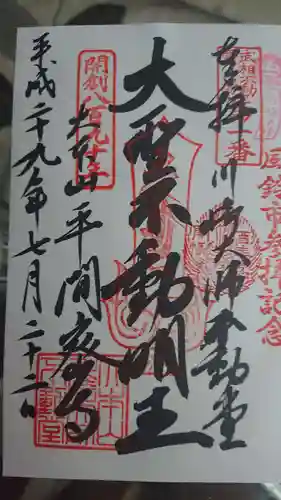 奉拝 川崎大師不動堂
武相不動
一番
風鈴市参拝記念
大聖不動明王
開創八百九十年
大本山平間寺
平成二十九年七月二十二日